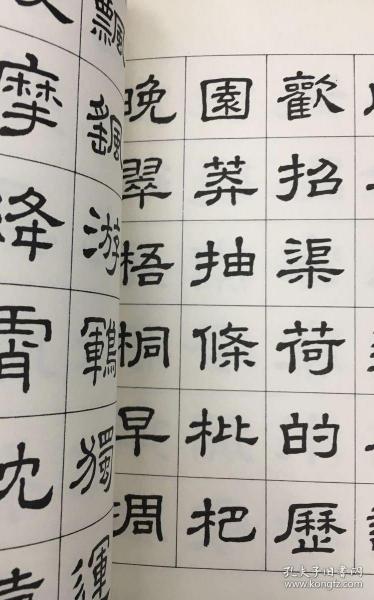 歡招渠荷的歷
園莽抽條枇杷
晚翠梧桐早凋
飄颻游鶤獨運
摩絳霄
孔夫子旧书网
www.kongfz.com